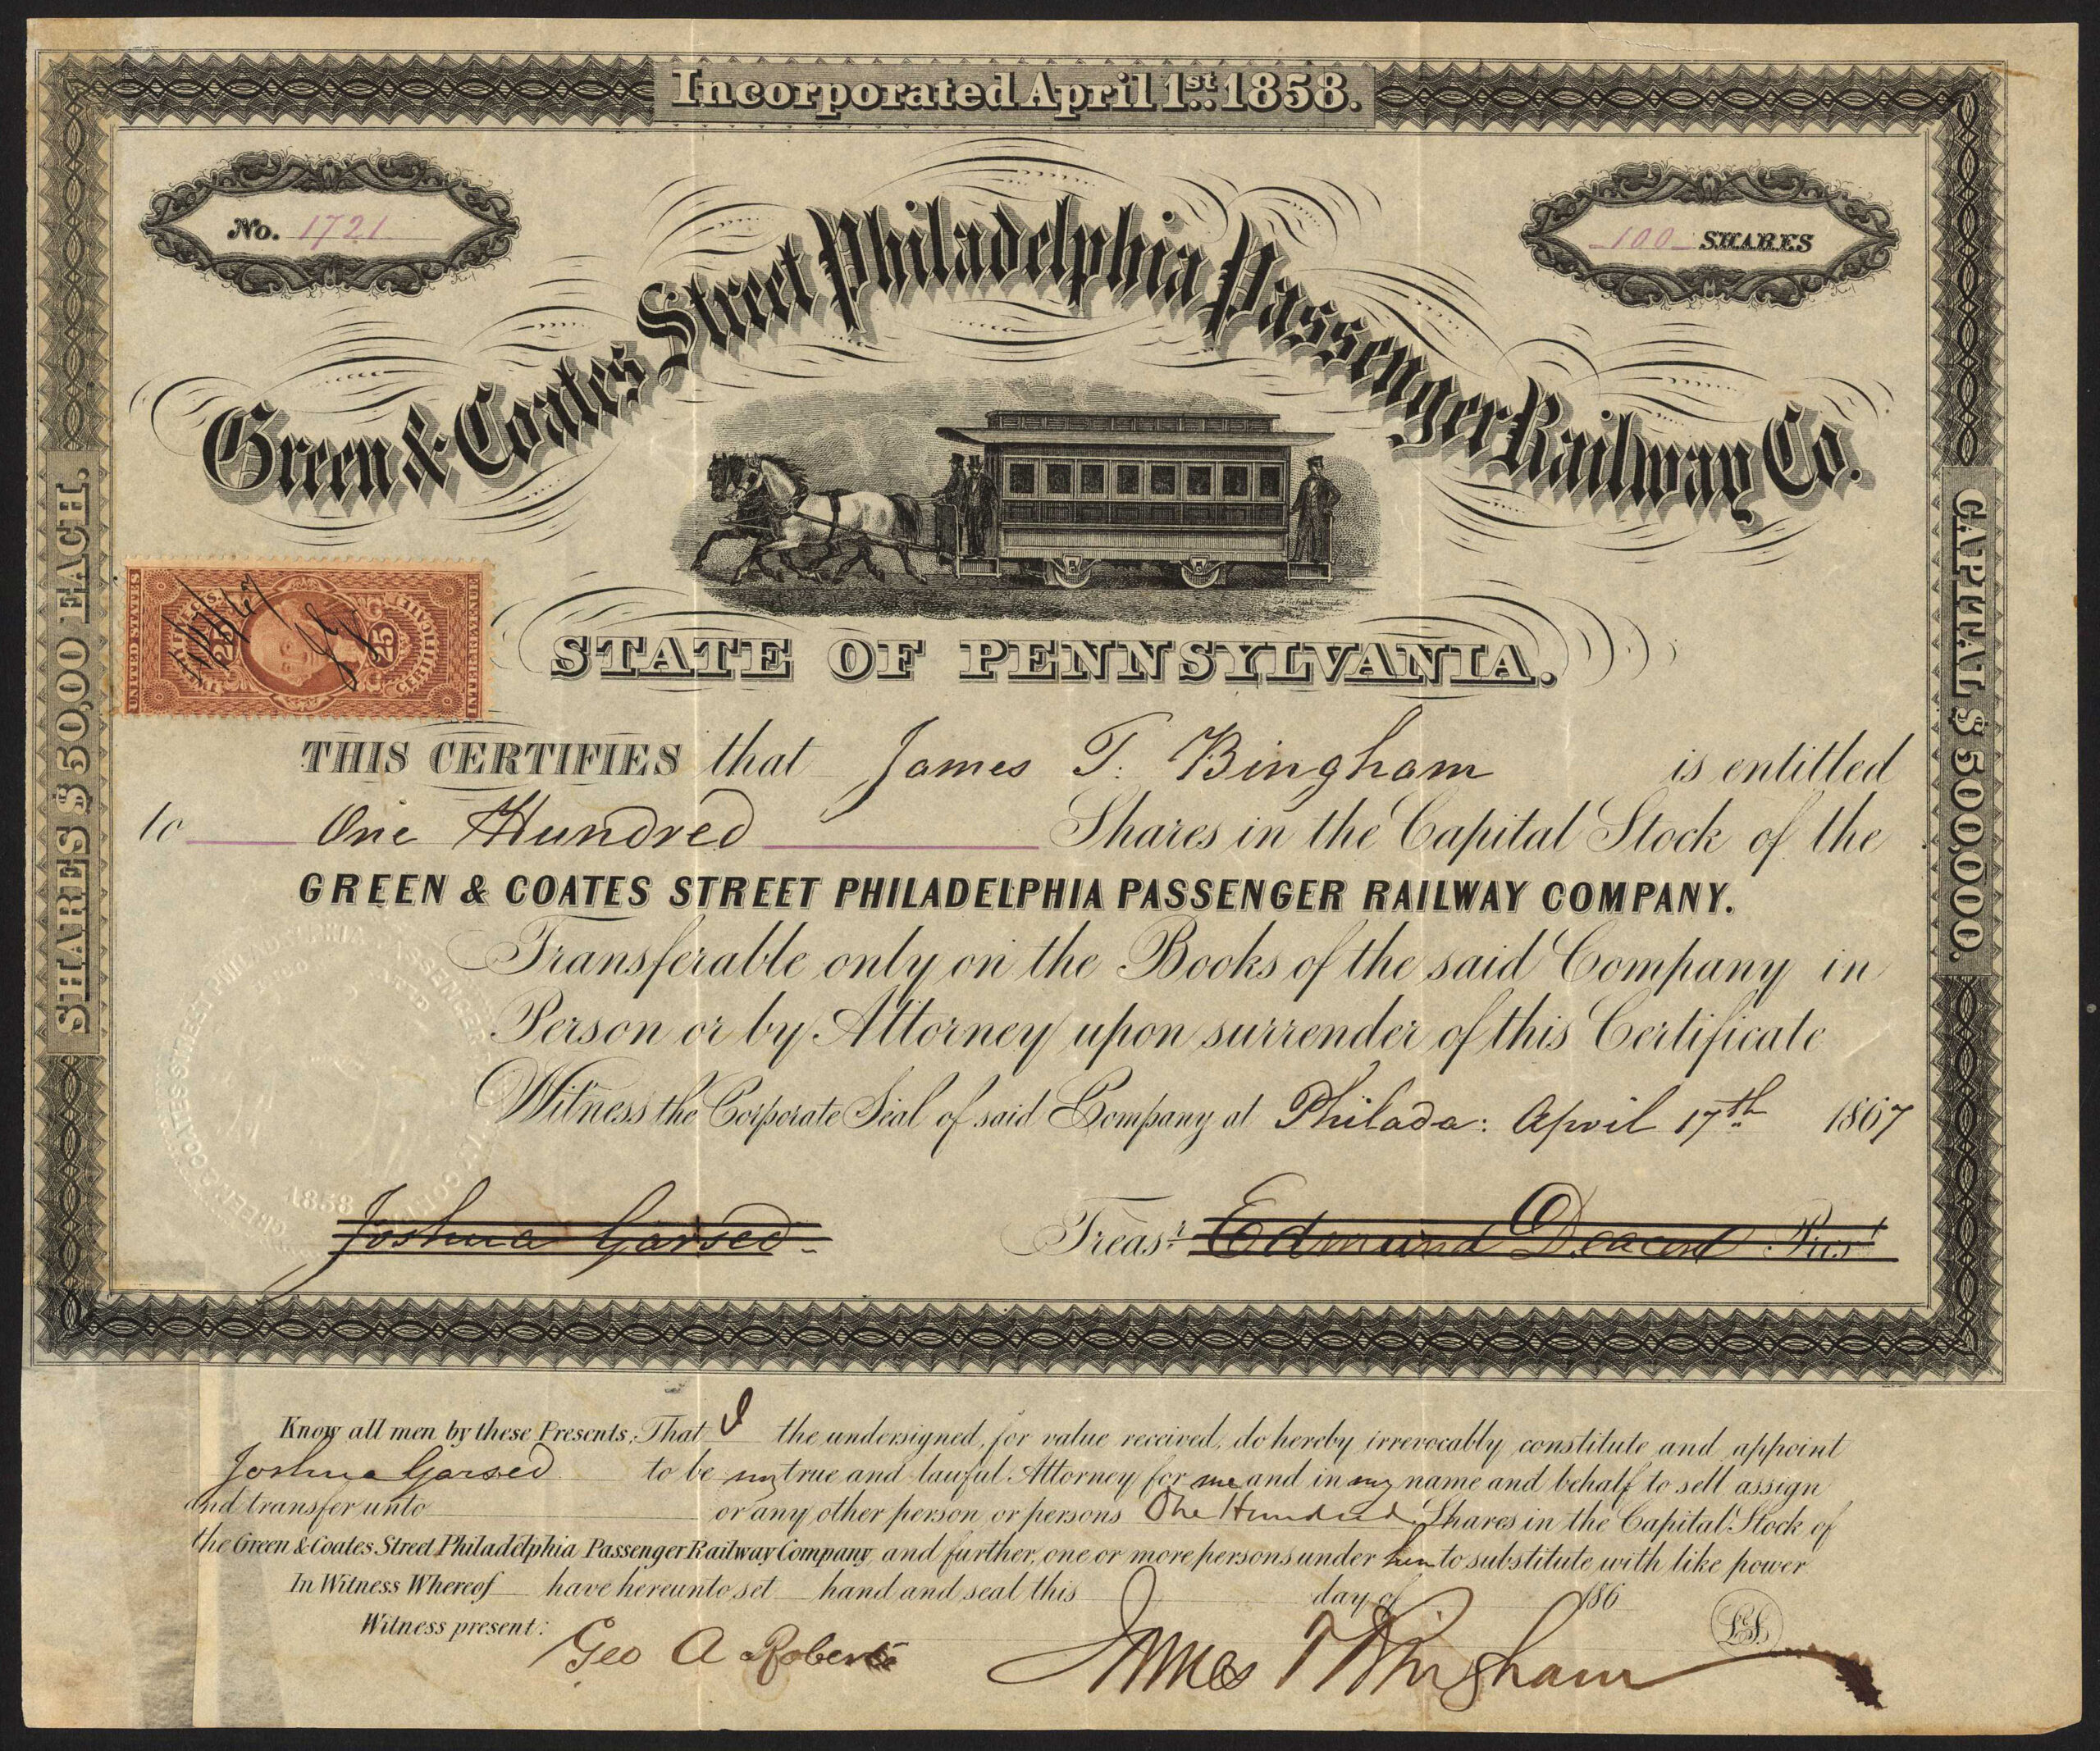 Incorporated April 1st. 1858.
No. 1721
100 SHARES
Green & Coates Street Philadelphia Passenger Railway Co.
SHARES $50,00 EACH.
CAPITAL $500,000.
UNITED STATES
INTER. REVENUE
25
25
CERTIFICATE
STATE OF PENNSYLVANIA.
THIS CERTIFIES that James T. Bingham is entitled
to One Hundred Shares in the Capital Stock of the
GREEN & COATES STREET PHILADELPHIA PASSENGER RAILWAY COMPANY.
Transferable only on the Books of the said Company in
Person or by Attorney upon surrender of this Certificate
Witness the Corporate Seal of said Company at Philada: April 17th 1867
GREEN & COATES STREET PHILADELPHIA PASSENGER
1858
Joshua Garsed Treasr. Edmund Deacon Prest
Know all men by these Presents, That I the undersigned, for value received, do hereby irrevocably constitute and appoint
Joshua Garsed to be my true and lawful Attorney for me and in my name and behalf to sell assign
and transfer unto or any other person or persons One Hundred Shares in the Capital Stock of
the Green & Coates Street Philadelphia Passenger Railway Company, and further, one or more persons under him to substitute with like power
In Witness Whereof have hereunto set hand and seal this day of 186
Witness present:
L.S.
Geo A Roberts James T Bingham